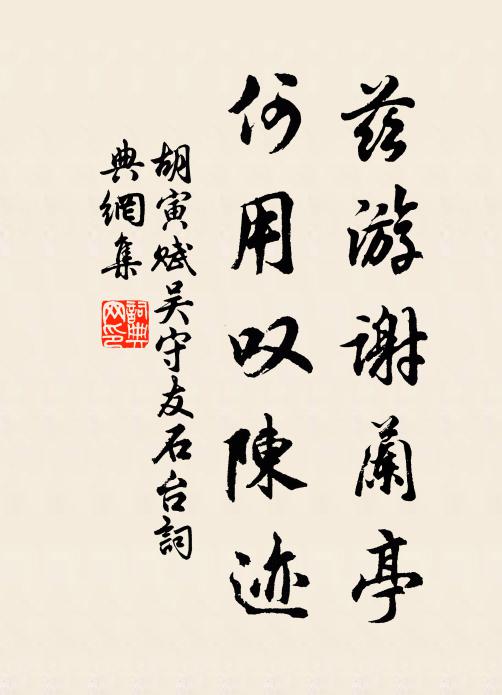 茲游謝蘭亭
何用叹陳迹
胡寅赋吴守友石台詞
典網集
詞典
网印